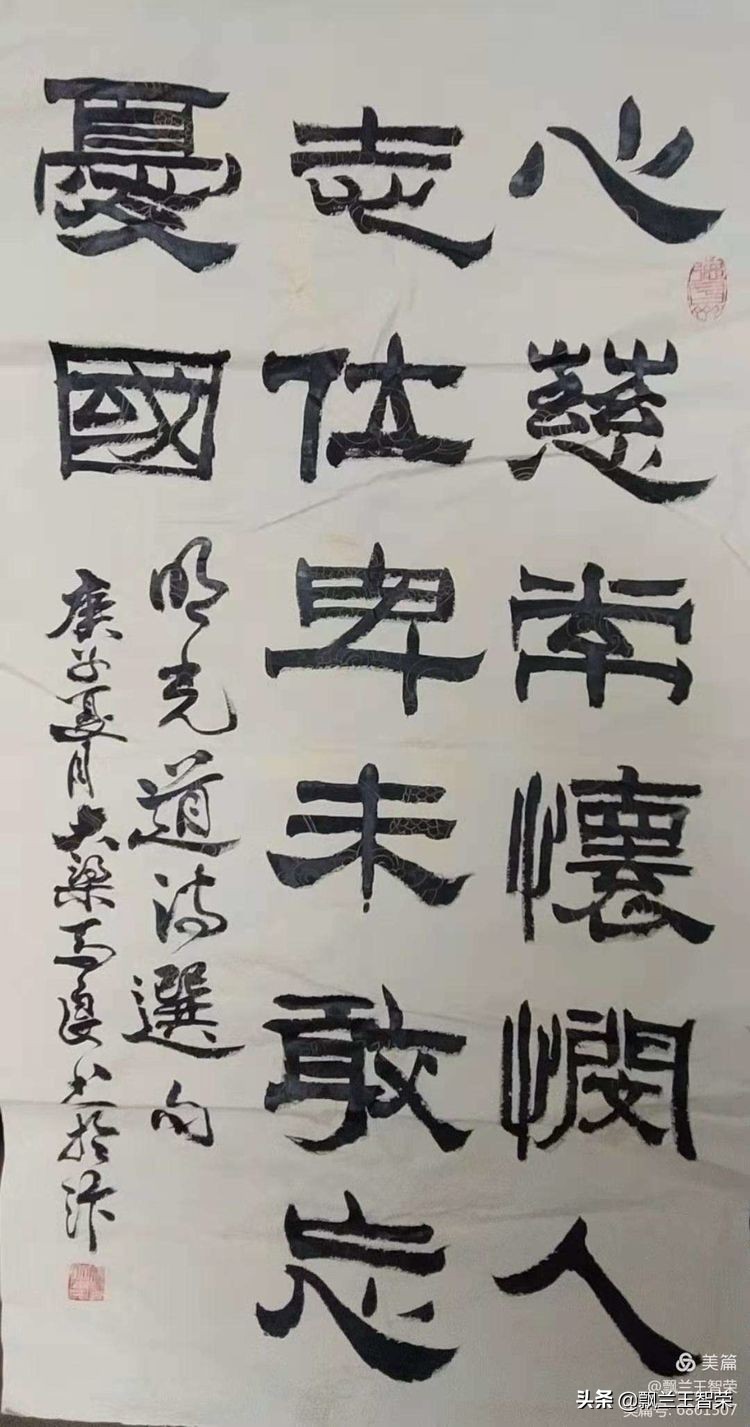 心慈常懷憫人
志仕卑未敢忘
憂國
明光道诗選句
庚子夏月大梁马良书於汴
美篇
@飘兰王智荣
美篇号: 6801507
头条 @飘兰王智荣